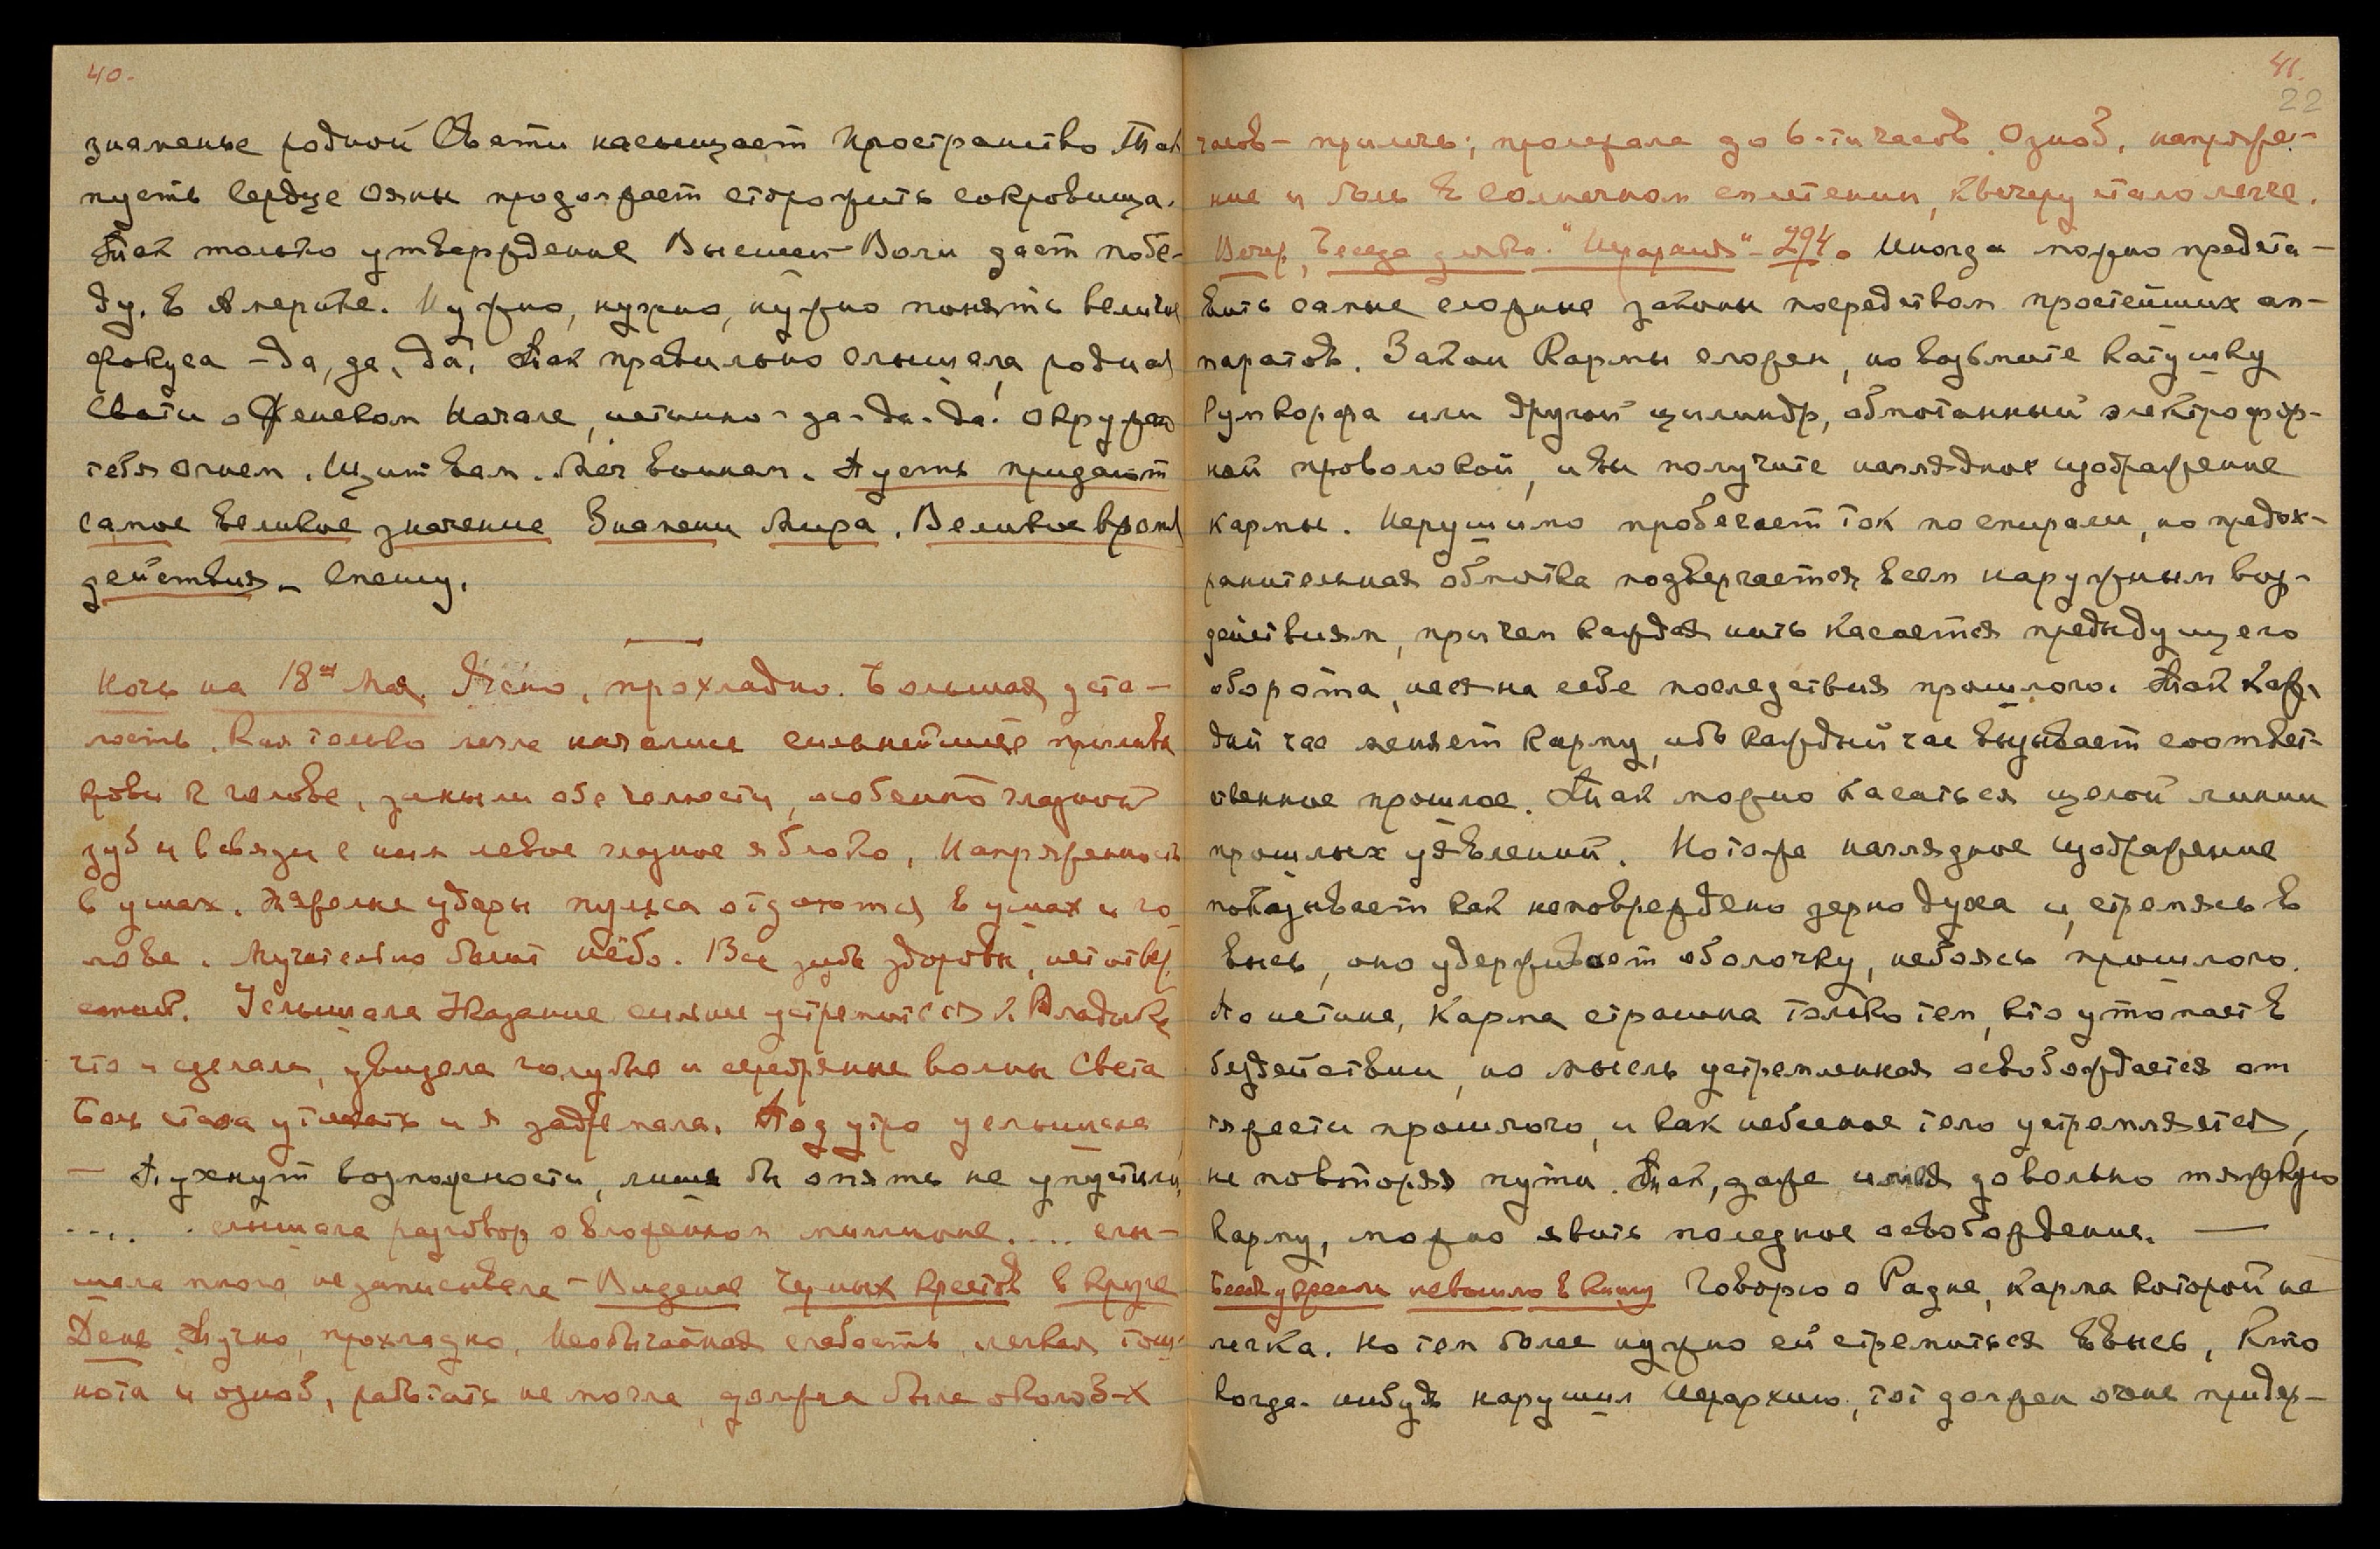 40.
знаменье родной Свати насыщает пространство. Так
пусть сердце Ояны продолжает сторожить сокровища.
Так только утверждение Высшей Воли дает побе-
ду. в Америке. Нужно, нужно, нужно понять величие
фокуса - да, да, да. Так правильно слышала, родная
Свати о Женском Начале, истинно - да - да - да. Окружаю
тебя огнем. Щит вам. Меч воинам. Пусть придают
самое великое значение Знамени Мира. Великое время
действия. Спешу.
Ночь на 18ое Мая. Ясно, прохладно. Большая уста-
лость. Как только легла начались сильнейшие приливы
крови к голове, заныли обе челюсти, особенно глазной
зуб и в связи с ним левое глазное яблоко, Напряженность
в ушах. Тяжелые удары пульса отдаются в ушах и го
лове. Мучительно болит нёбо. Все зубы здоровы, нет отвер.
стий. Услышала Указание сильнее устремиться к Владыке
что и сделала, увидела голубые и серебряные волны Света
Боль стала утихать и я задремала. Под утро услышала
— Пухнут возможности, лишь бы опять не упустили,
.... слышала разговор о вложенном миллионе.... слы-
шала много не записывала - Видение черных крестов в круге
День Тучно, прохладно, Необычайная слабость, легкая тош-
нота и озноб, работать не могла, должна была около 3-х
41.
22
часов - прилечь; пролежала до 6-ти часов. Озноб, напряже-
ние и боль в Солнечном сплетении, к вечеру стало легче.
Вечер, Беседа для кн. "Иерархия" - 294. Иногда можно предста-
вить самые сложные законы посредством простейших ап-
паратов. Закон Кармы сложен, но возьмите катушку
Румкорфа или другой цилиндр, обмотанный электрофор-
ной проволокой, и вы получите наглядное изображение
Кармы. Нерушимо пробегает ток по спирали, но предох-
ранительная обмотка подвергается всем наружным воз-
действиям, при чем каждая нить касается предыдущего
оборота, неся на себе последствия прошлого. Так каж-
дый час меняет карму, ибо каждый час вызывает соответ-
ственное прошлое. Так можно касаться целой линии
прошлых уявлений. Но то же наглядное изображение
показывает как неповреждено зерно духа и, стремясь в
высь, оно удерживает оболочку, не боясь прошлого.
Поистине, Карма страшна только тем, кто утопает в
бездействии, но мысль устремленная освобождается от
тяжести прошлого, и как небесное тело устремляется,
не повторяя пути. Так, даже имея довольно тяжкую
карму, можно явить полезное освобождение. —
не вошло в книгу Говорю о Радне, карма которой не
легка. Но тем более нужно ей стремиться ввысь, Кто
когда-нибудь нарушил Иерархию, тот должен очень придер-